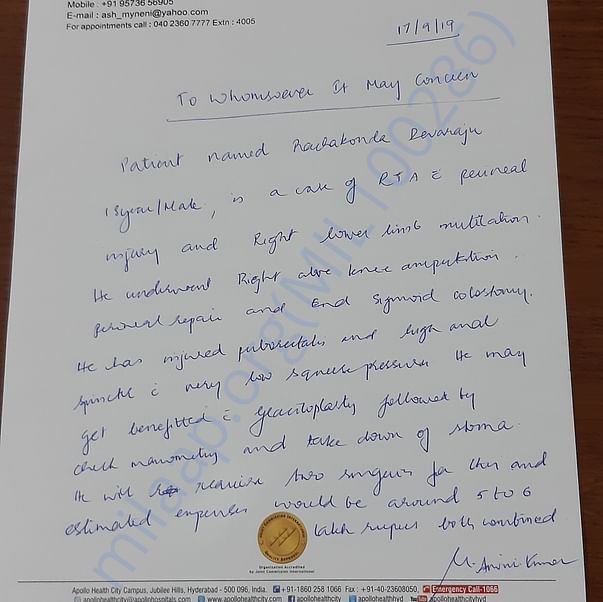 Mobile : +91 95736 56905
E-mail : ash_myneni@yahoo.com
For appointments call : 040 2360 7777 Extn : 4005
17/9/19
To Whomsoever It May Concern
Patient named Rachakonda Devaraju
18year/Male, is a case of RTA c̄ perineal
injury and Right lower limb mutilation.
He underwent Right above knee amputation.
perineal repair and End sigmoid colostomy.
He has injured puborectalis and high anal
sphincter c̄ very low squeeze pressure. He may
get benefitted c̄ Graciloplasty followed by
check manometry and take down of stoma.
He will require two surgeries for this and
estimated expenses would be around 5 to 6
lakh rupees both combined
M. Aswini Kumar
milaap.org(MIL100286)
JOINT COMMISSION INTERNATIONAL
QUALITY APPROVAL
Organization Accredited
by Joint Commission International
Apollo Health City Campus, Jubilee Hills, Hyderabad - 500 096, India. +91-1860 258 1066 Fax : +91-40-23608050, Emergency Call-1066
apollohealthcity@apollohospitals.com www.apollohealthcity.com apollohealthcityhyd apollohealthcityhyd You Tube apollohealthcityhyd